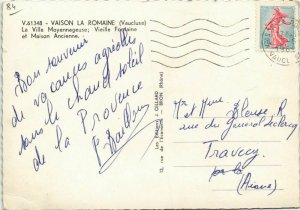 84
V.61348 - VAISON LA ROMAINE (Vaucluse)
La Ville Moyennageuse; Vieille Fontaine
et Maison Ancienne.
VAUCL
Bon souvenir
de vacances agréables
sous le chaud soleil
de la Provence
Les Editions J. CELLARD
BRON (Rhône)
Mr et Mme
rue du Général Leclerc
Travecy
(Aisne)